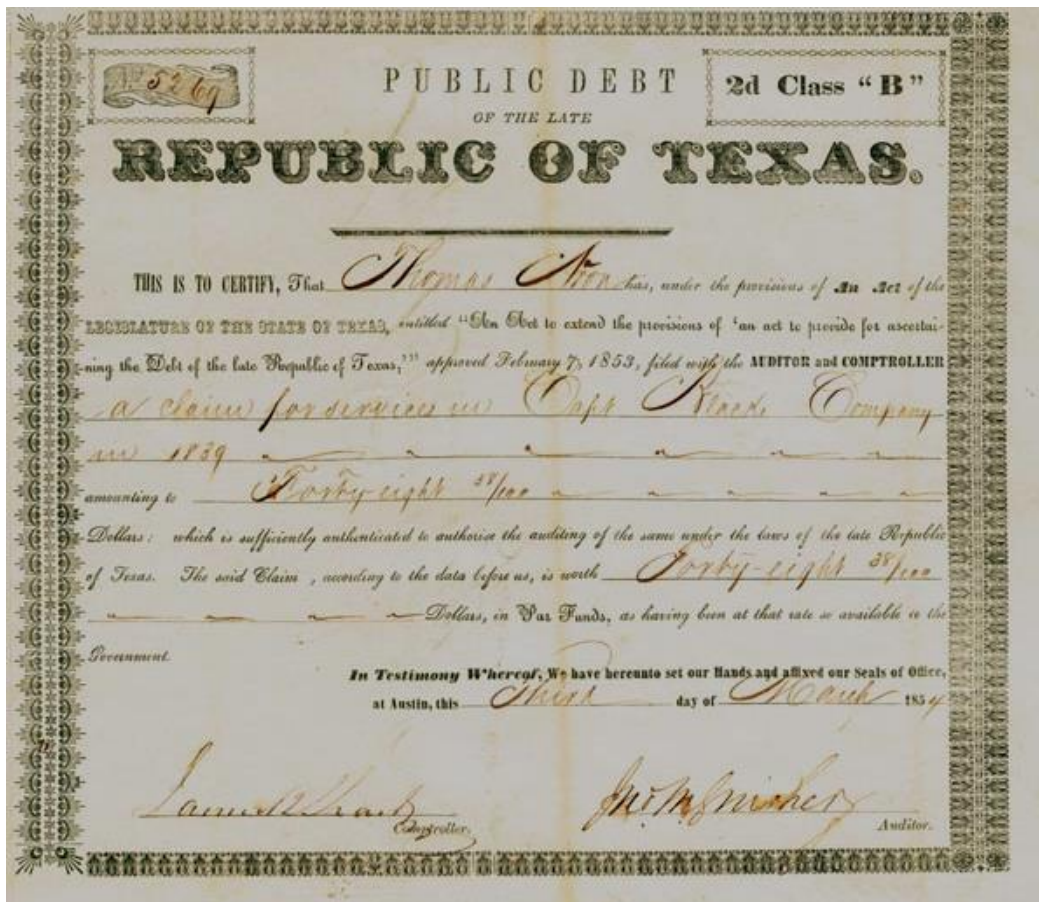 No 5269
PUBLIC DEBT
2d Class "B"
OF THE LATE
REPUBLIC OF TEXAS.
THIS IS TO CERTIFY, That Thomas has, under the provisions of An Act of the
LEGISLATURE OF THE STATE OF TEXAS, entitled "An Act to extend the provisions of 'an act to provide for ascertai-
ning the Debt of the late Republic of Texas,'" approved February 7, 1853, filed with the AUDITOR and COMPTROLLER
a claim for services in Capt Company
in 1839
amounting to Forty-eight 38/100
Dollars: which is sufficiently authenticated to authorise the auditing of the same under the laws of the late Republic
of Texas. The said Claim, according to the data before us, is worth Forty-eight 38/100
Dollars, in Par Funds, as having been at that rate so available to the
Government.
In Testimony Whereof, We have hereunto set our Hands and affixed our Seals of Office,
at Austin, this Third day of March 1854
James B Shaw
Comptroller.
Jno. M. Swisher
Auditor.